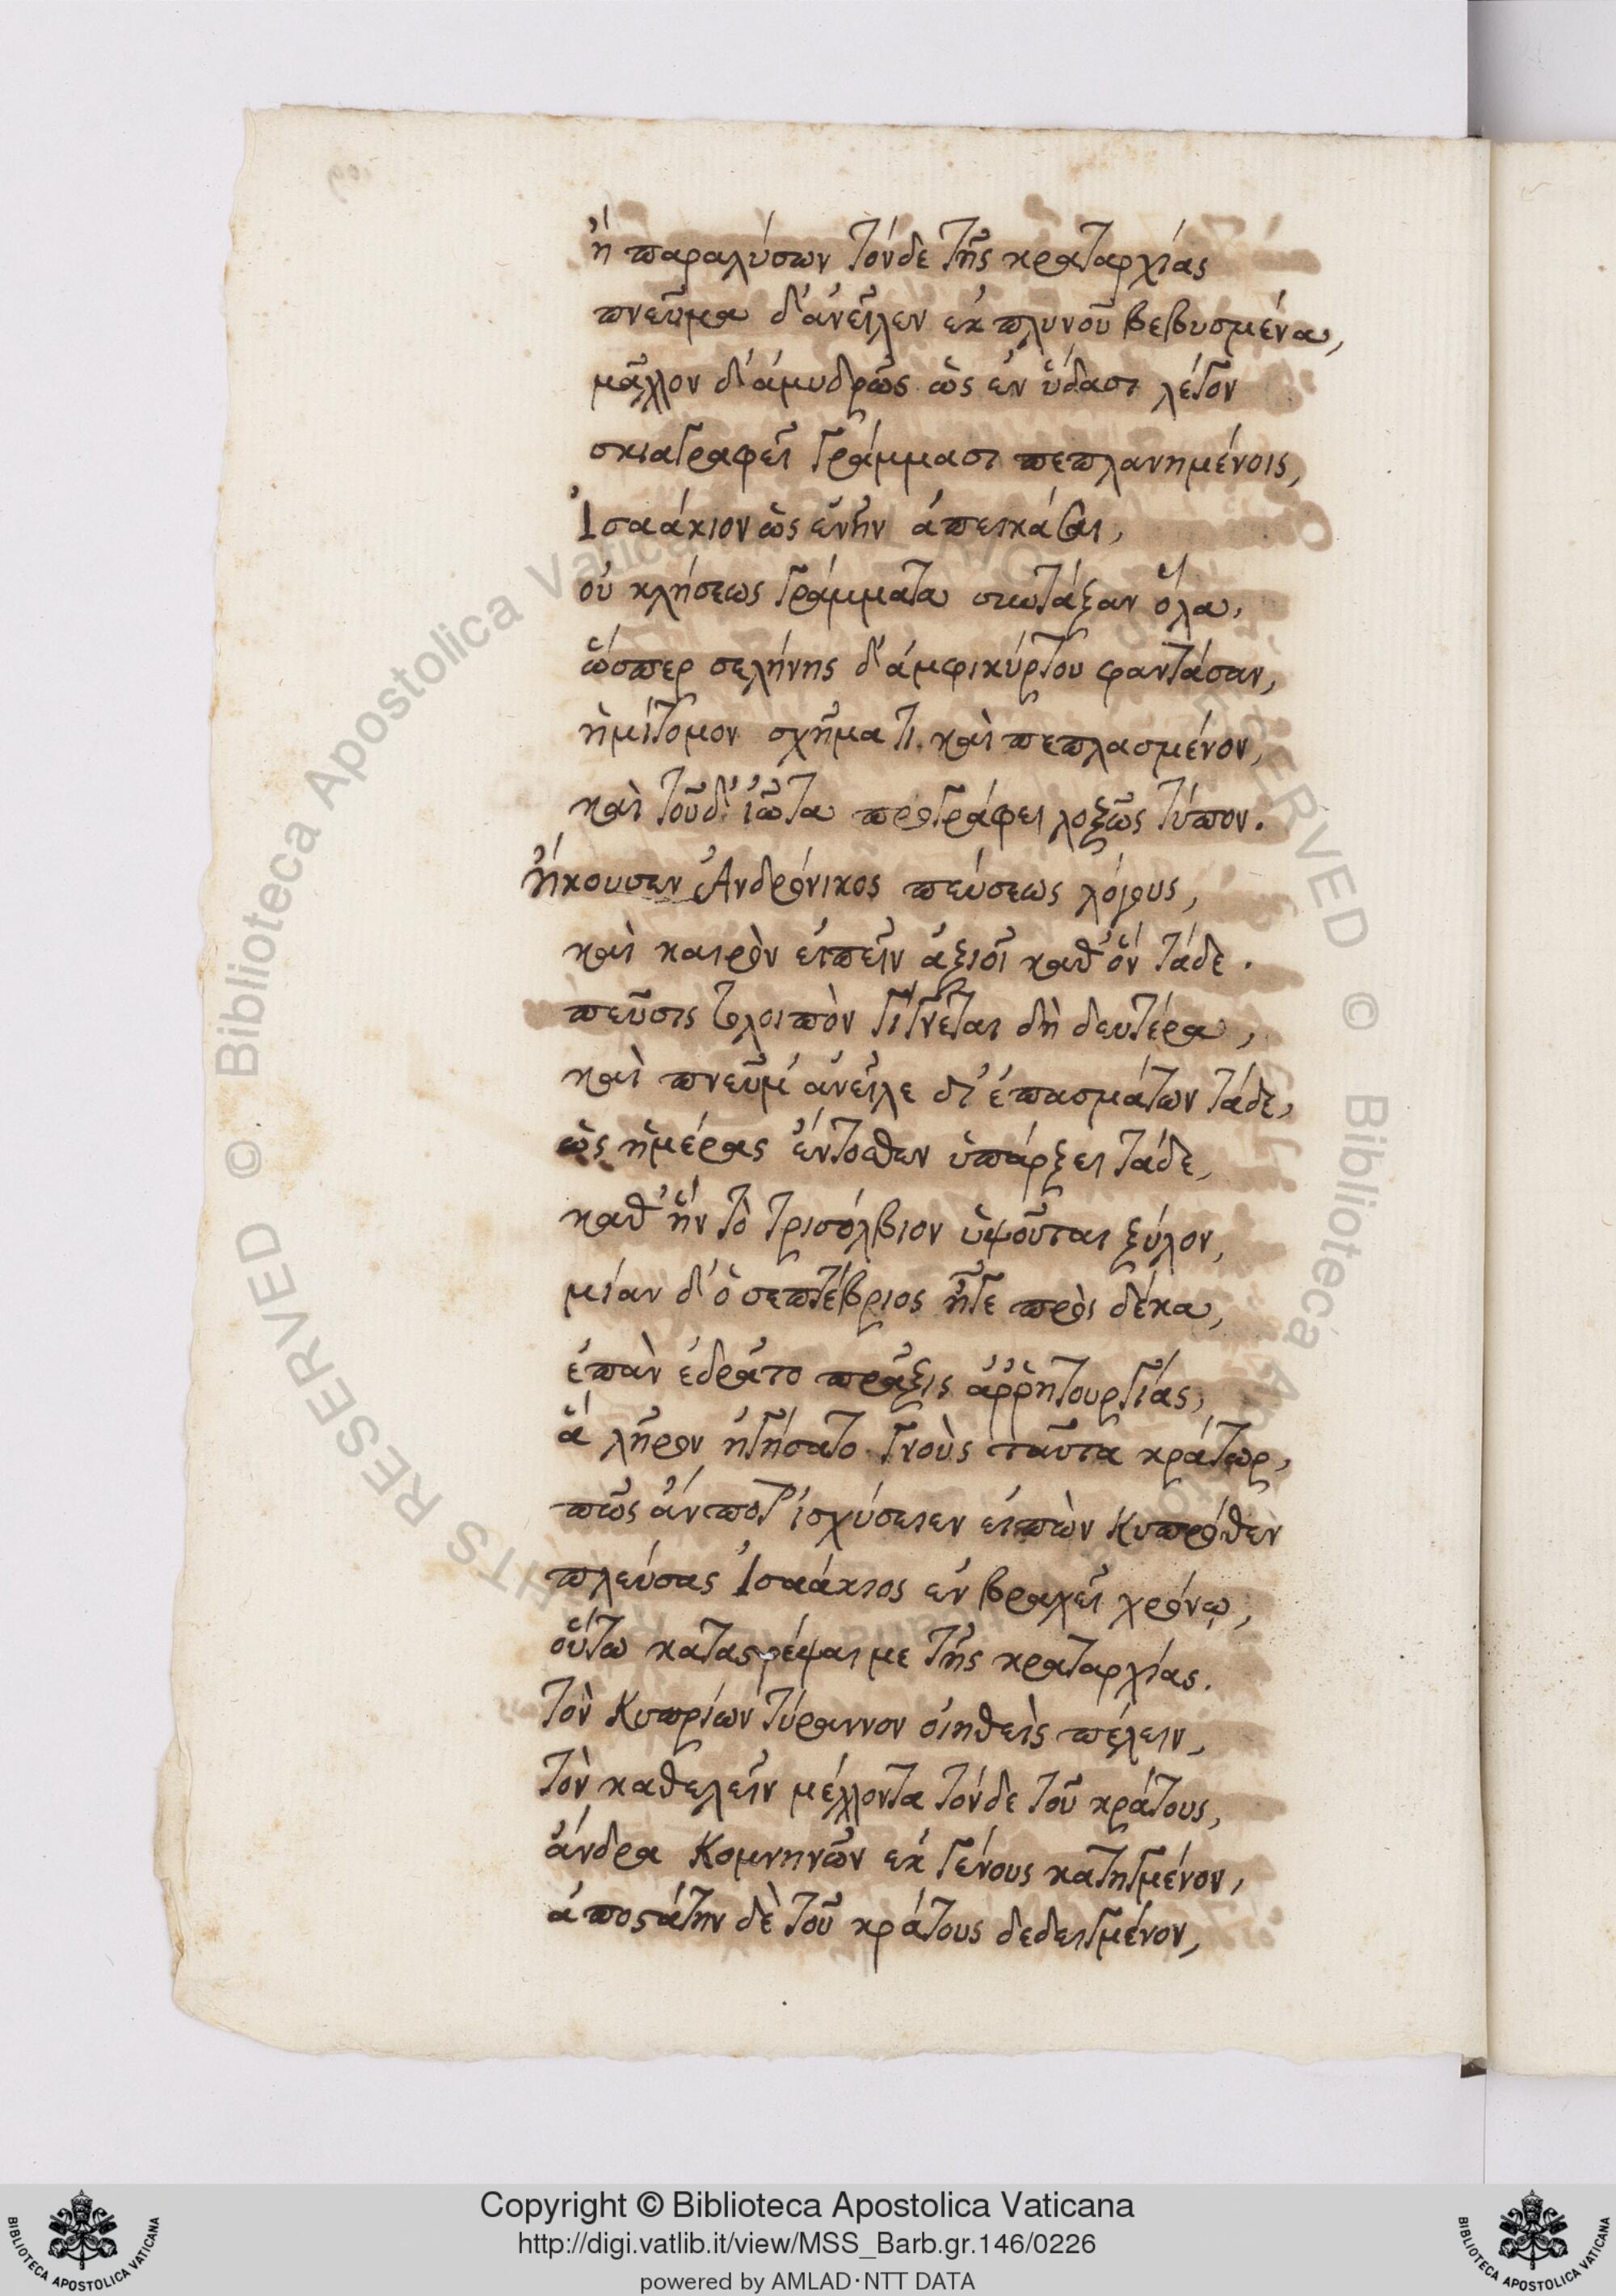 ἢ παραλύσων τόνδε τῆς κραταρχίας
πνεῦμα δ' ἀνεῖλεν ἐκ πλυνοῦ βεβυσμένα,
μᾶλλον δ' ἀμυδρῶς ὡς ἐν ὕδασι λέγον
σκιαγραφεῖ γράμμασι πεπλανημένοις,
Ἰσαάκιον ὡς ἐνῆν ἀπεικάσαι,
οὐ κλήσεως γράμματα συντάξαν ὅλα,
ὥσπερ σελήνης δ' ἀμφικύρτου φαντάσαν,
ἡμίτομον σχῆμα τι καὶ πεπλασμένον,
καὶ τοῦδ' ἰῶτα προγράφει λοξῶς τύπον.
ἤκουσεν Ἀνδρόνικος πεύσεως λόγους,
καὶ καιρὸν εἰπεῖν ἀξιοῖ καθ' ὃν τάδε.
πεῦσις τὸλοιπὸν γίγνεται δὴ δευτέρα,
καὶ πνεῦμ' ἀνεῖλε δι' ἐπασμάτων τάδε,
ὡς ἡμέρας ἔντοσθεν ὑπάρξει τάδε,
καθ' ἣν τὸ τρισόλβιον ὑψοῦται ξύλον,
μίαν δ' ὁ σεπτέβριος ἦγε πρὸς δέκα,
ἐπὰν ἐδρᾶτο πρᾶξις ἀῤῥητουργίας,
ἃ λῆρον ἡγήσατο γνοὺς ταῦτα κράτωρ,
πῶς ἄν ποτ' ἰσχύσειεν εἰπὼν Κυπρόθεν
πλεύσας Ἰσαάκιος ἐν βραχεῖ χρόνῳ,
οὕτω καταστρέψαι με τῆς κραταρχίας.
τὸν Κυπρίων τύραννον οἰηθεὶς πέλειν,
τὸν καθελεῖν μέλλοντα τόνδε τοῦ κράτους,
ἄνδρα Κομνηνῶν ἐκ γένους κατηγμένον,
ἀποστάτην δὲ τοῦ κράτους δεδειγμένον,
© Biblioteca Apostolica Vaticana
RIGHTS RESERVED
Copyright © Biblioteca Apostolica Vaticana
http://digi.vatlib.it/view/MSS_Barb.gr.146/0226
powered by AMLAD·NTT DATA
BIBLIOTECA APOSTOLICA VATICANA
BIBLIOTECA APOSTOLICA VATICANA